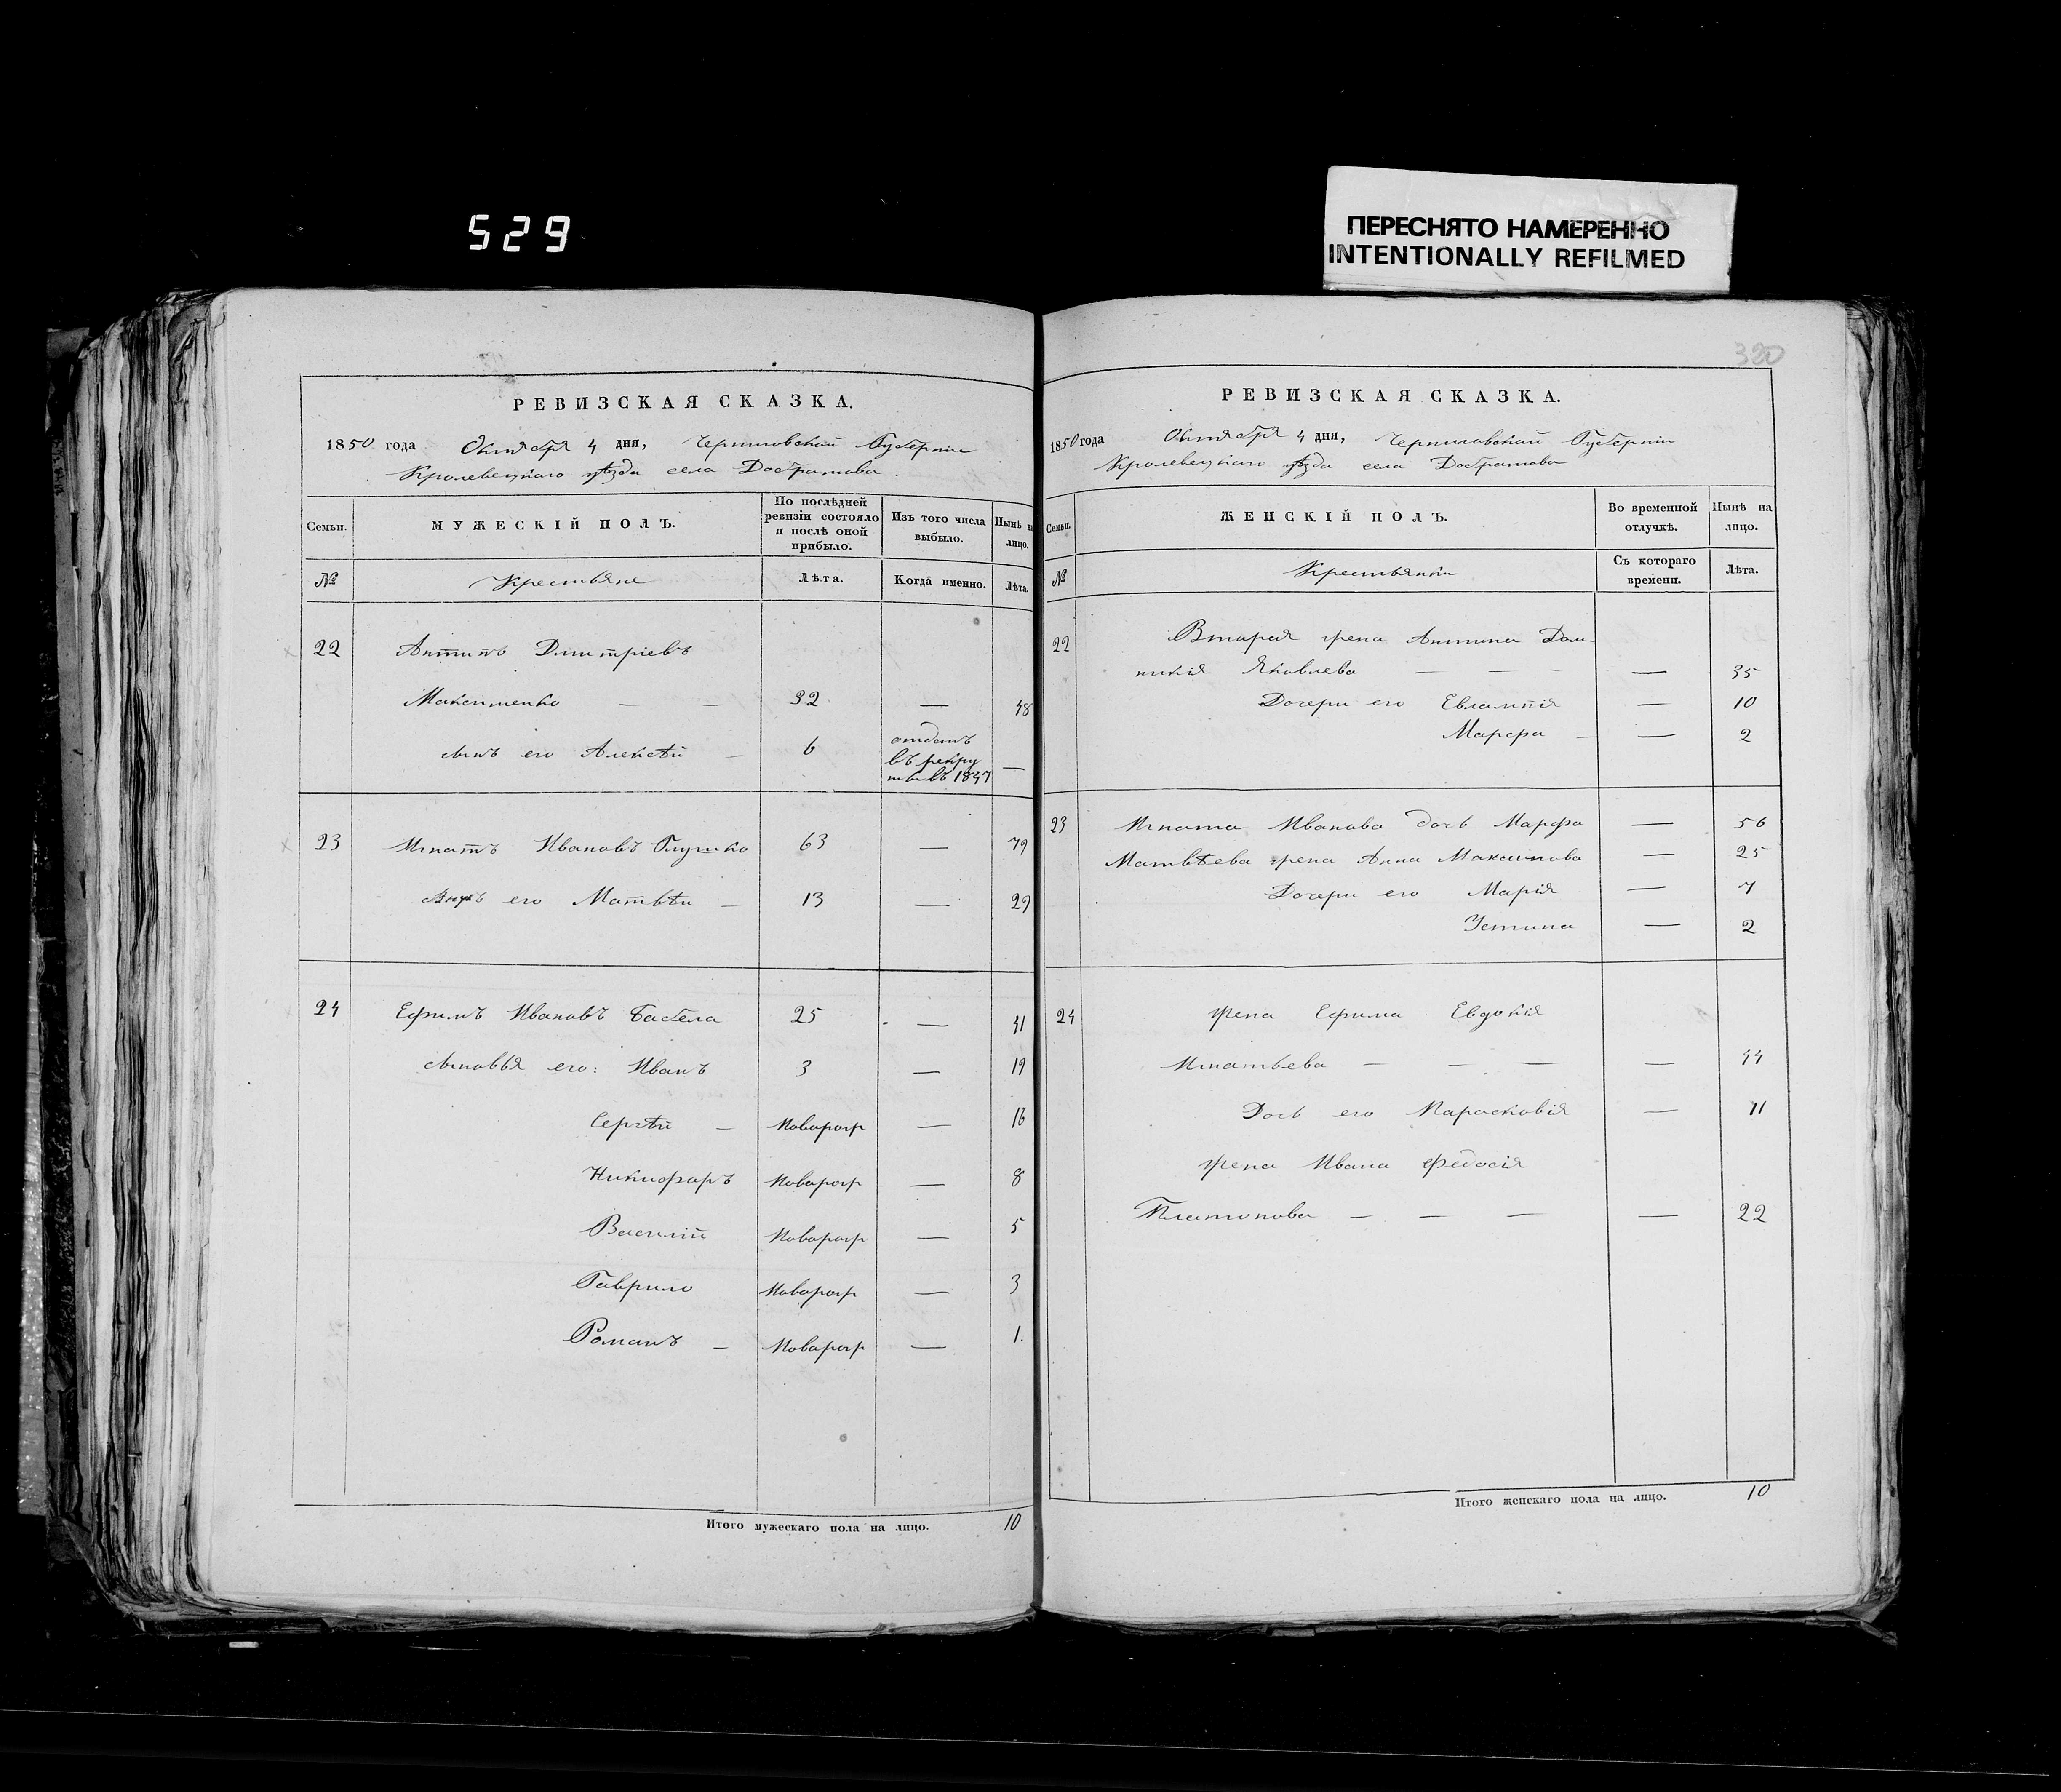 529
ПЕРЕСНЯТО НАМЕРЕННО
INTENTIONALLY REFILMED
РЕВИЗСКАЯ СКАЗКА.
1850 года Октября 4 дня, Черниговской Губернiи
Кролевецкаго уѣзда села Добратова
Семьи.
МУЖЕСКIЙ ПОЛЪ.
По послѣдней
ревизiи состояло
и послѣ оной
прибыло.
Изъ того числа
выбыло.
Нынѣ на
лицо.
№
Крестьяне
Лѣта.
Когда именно.
Лѣта.
22 Антипъ Дмитрiевъ
Максименко — — 32 — 48
сынъ его Алексѣй — 6 отданъ
въ рекру
ты въ 1847 —
23 Игнатъ Ивановъ Глушко 63 — 79
Внукъ его Матвѣй — 13 — 29
24 Ефимъ Ивановъ 25 — 41
сыновья его: Иванъ 3 — 19
Сергѣй — Новорож — 16
Никифоръ Новорож — 8
Василiй Новорож — 5
Гаврило Новорож — 3
Романъ — Новорож — 1.
Итого мужескаго пола на лицо. 10
320
РЕВИЗСКАЯ СКАЗКА.
1850 года Октября 4 дня, Черниговской Губернiи
Кролевецкаго уѣзда села Добратова
Семьи.
ЖЕНСКIЙ ПОЛЪ.
Во временной
отлучкѣ.
Нынѣ на
лицо.
№
Крестьянки
Съ котораго
времени.
Лѣта.
22 Вторая жена Антипа Дом-
никiя Яковлева — — — — 35
Дочери его Евлампiя — 10
Марфа — — 2
23 Игната Иванова дочь Марфа — 56
Матвѣева жена Анна Максимова — 25
Дочери его Марiя — 7
Устина — 2
24 жена Ефима Евдокiя
Игнатьева — — — — 44
Дочь его Парасковiя — 11
жена Ивана Федосiя
Платонова — — — — 22
Итого женскаго пола на лицо. 10